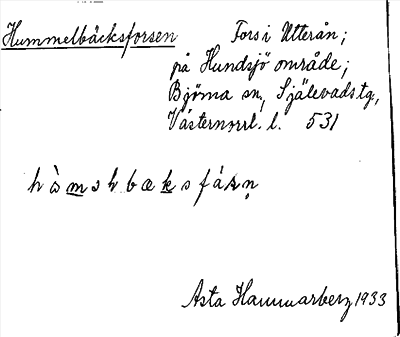 Hummelbäcksforsen Fors i Utterån;
på Hundsjö område;
Björna sn, Själevads tg,
Västernorrl. l. 531
Asta Hammarberg 1933